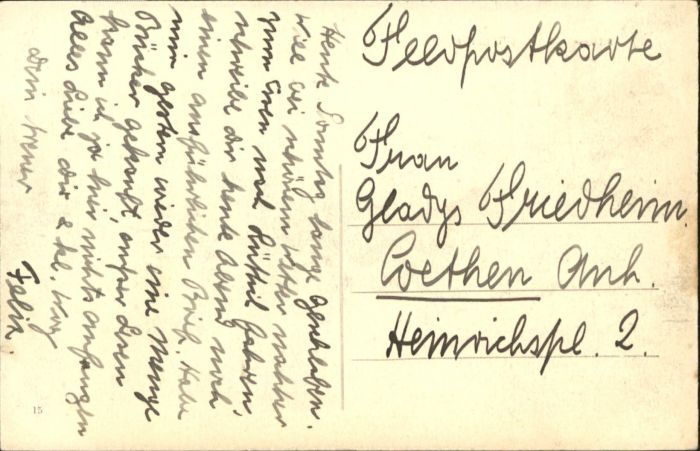 Feldpostkarte
Frau
Gladys Friedheim.
Coethen Anh.
Heinrichspl. 2.
Heute Sonntag lange geschlafen.
Will bei schönem Wetter nachher
zum Essen nach Lüttich fahren,
schreibe dir heute Abend noch
einen ausführlichen Brief. Habe
mir gestern wieder eine Menge
Bücher gekauft ausser Lesen
kann ich ja hier nichts anfangen
Alles Liebe Dir &
dein treuer
Felix.
15